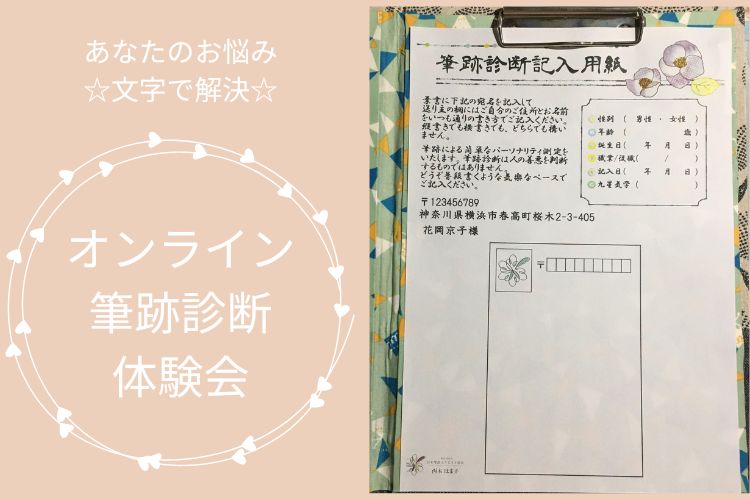 あなたのお悩み
☆文字で解決☆
オンライン
筆跡診断
体験会
筆跡診断記入用紙
葉書に下記の宛名を記入して
送り主の欄にはご自分のご住所とお名前
をいつも通りの書き方でご記入ください。
縦書きでも横書きでも、どちらでも構い
ません。
筆跡による簡単なパーソナリティ測定を
いたします。筆跡診断は人の善悪を判断
するものではありません。
どうぞ普段書くような気楽なペースで
ご記入ください。
性別 ( 男性 ・ 女性 )
年齢 ( 歳)
誕生日( 年 月 日)
職業/役職( / )
記入日( 年 月 日)
九星気学( )
〒123456789
神奈川県横浜市春高町桜木2-3-405
花岡京子様
〒